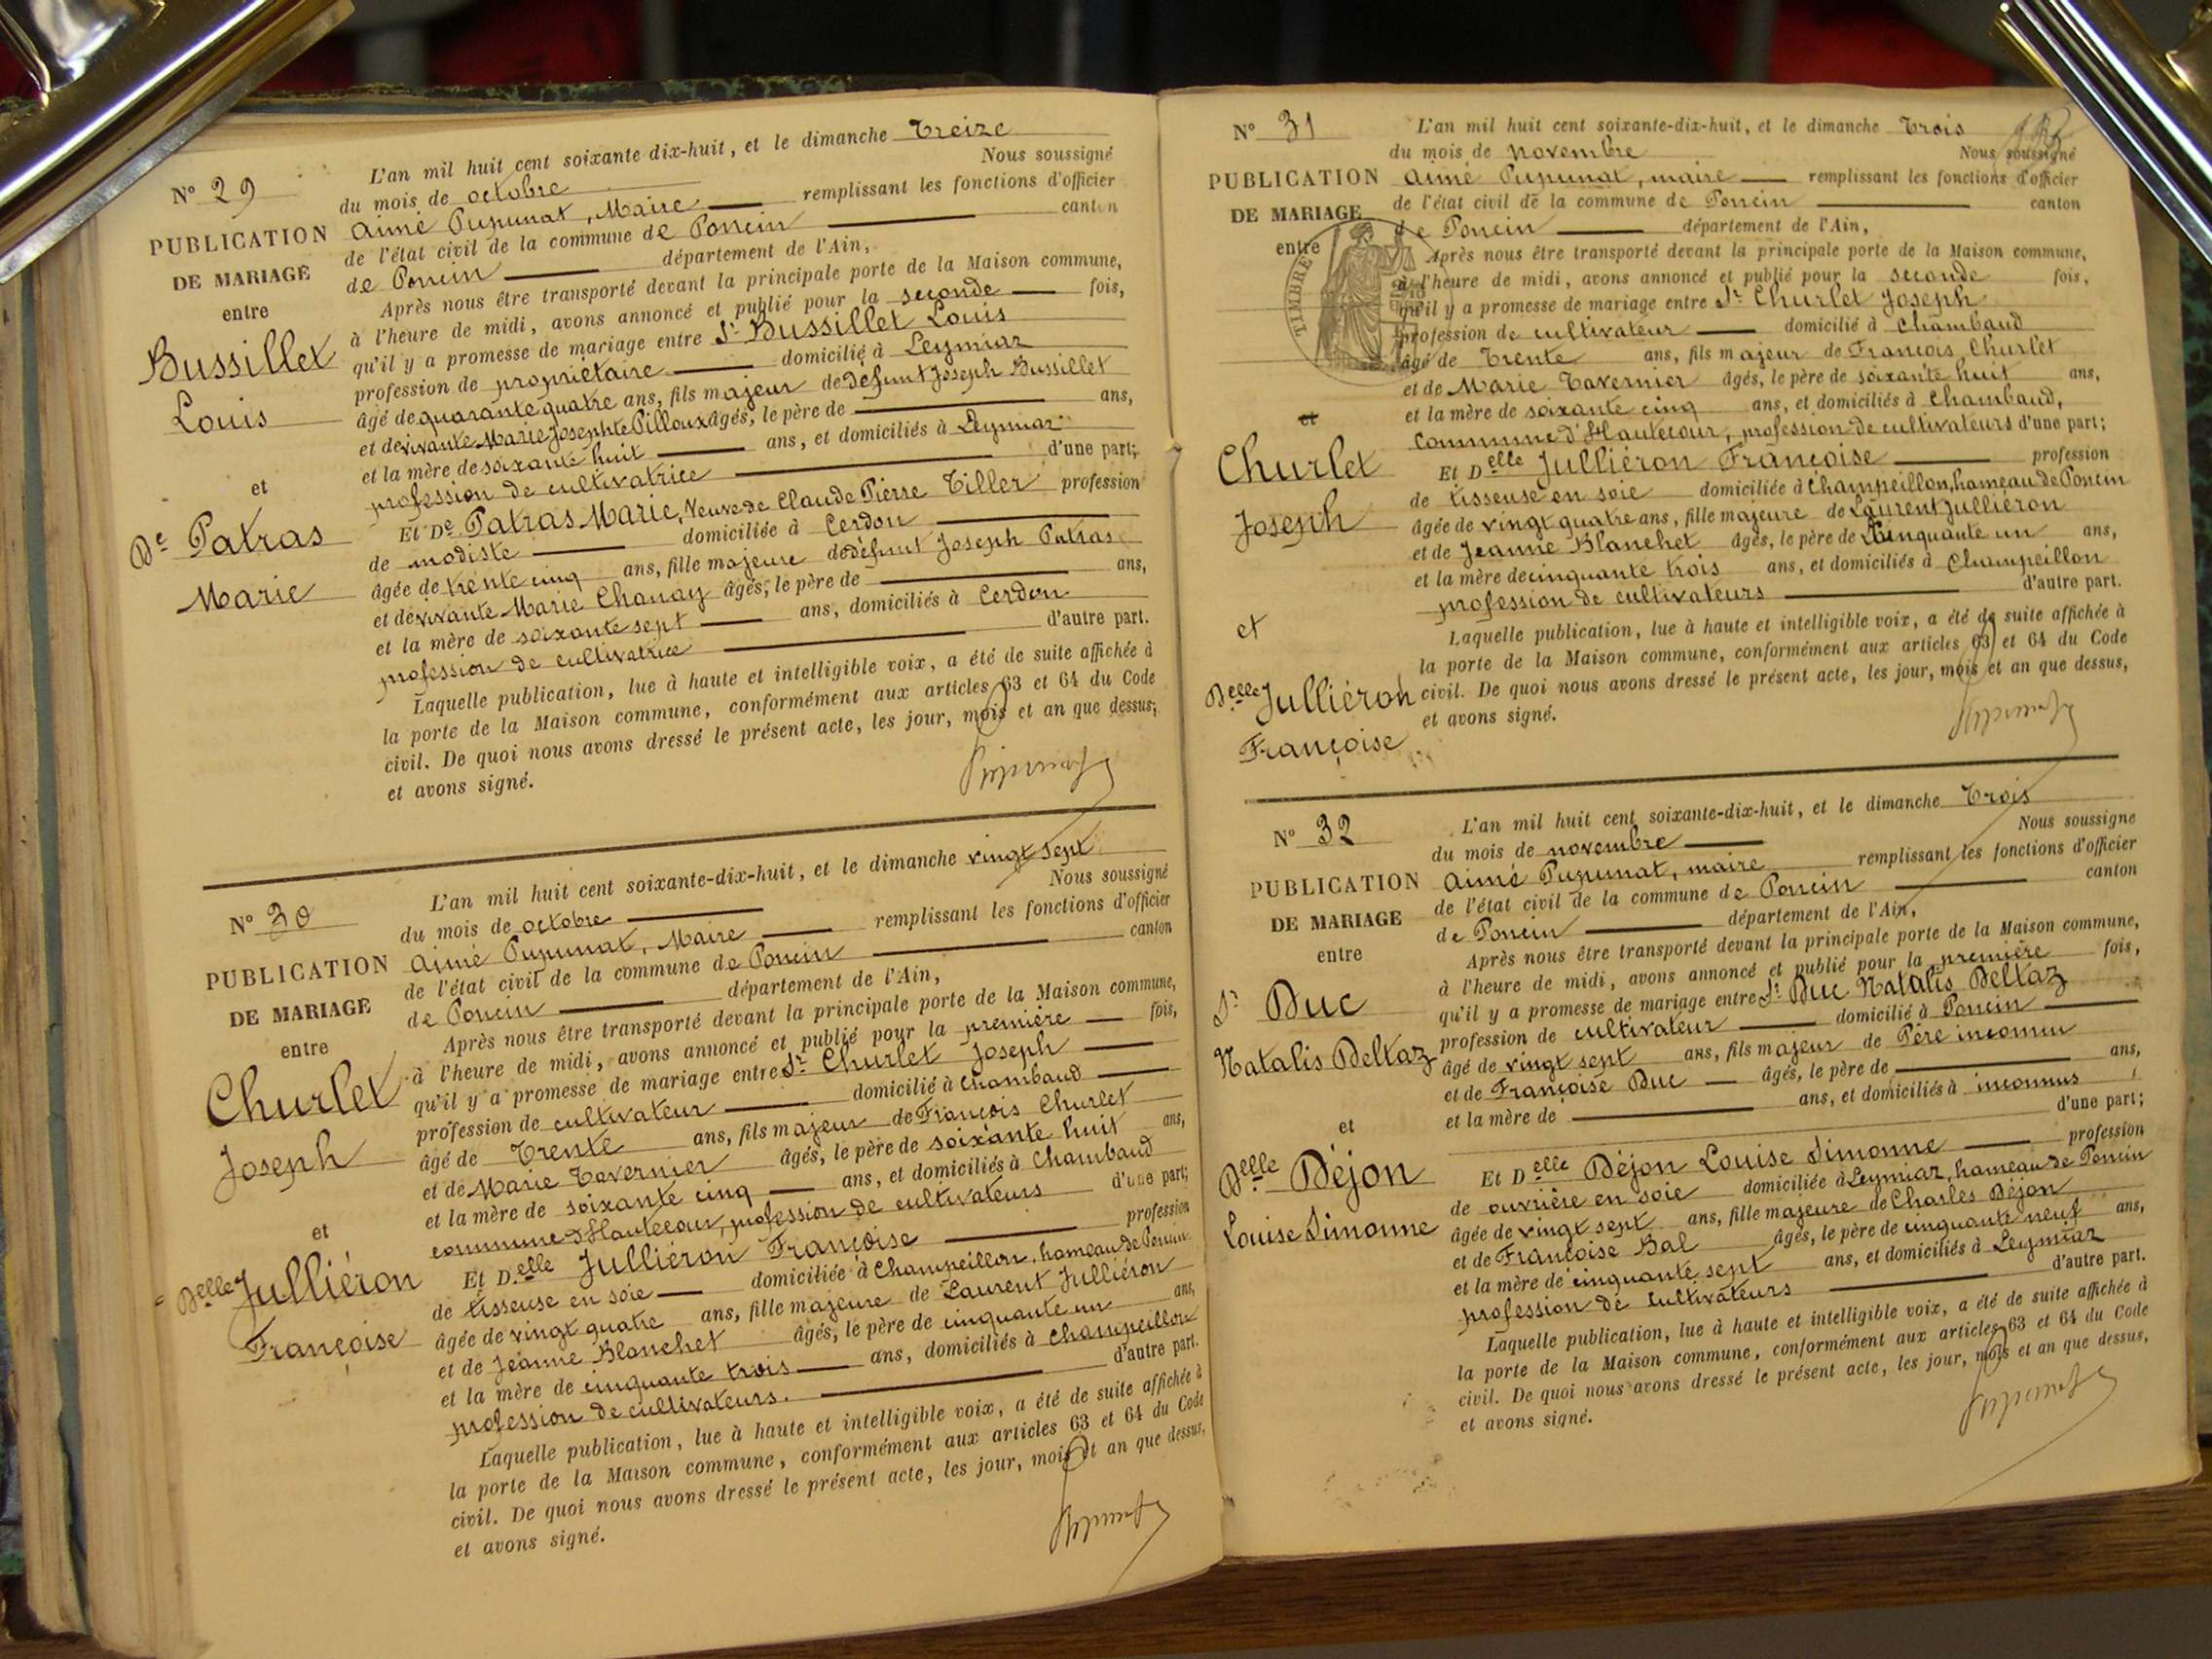 N° 29
PUBLICATION
DE MARIAGE
entre
Bussillet
Louis
et
De Patras
Marie
L'an mil huit cent soixante-dix-huit, et le dimanche Treize
du mois de octobre Nous soussigné
Aimé Pupunat, Maire remplissant les fonctions d'officier
de l'état civil de la commune de Poncin canton
de Poncin département de l'Ain,
Après nous être transporté devant la principale porte de la Maison commune,
à l'heure de midi, avons annoncé et publié pour la seconde fois,
qu'il y a promesse de mariage entre Sr Bussillet Louis
profession de propriétaire domicilié à Leymiaz
âgé de quarante quatre ans, fils majeur de défunt Joseph Bussillet
et de vivante Marie Josephte Pilloux âgés, le père de ans,
et la mère de soixante huit ans, et domiciliés à Leymiaz
profession de cultivatrice d'une part;
Et De Patras Marie, Veuve de Claude Pierre Tiller profession
de modiste domiciliée à Cerdon
âgée de trente cinq ans, fille majeure de défunt Joseph Patras
et de vivante Marie Chanay âgés, le père de ans,
et la mère de soixante sept ans, domiciliés à Cerdon
profession de cultivatrice d'autre part.
Laquelle publication, lue à haute et intelligible voix, a été de suite affichée à
la porte de la Maison commune, conformément aux articles 63 et 64 du Code
civil. De quoi nous avons dressé le présent acte, les jour, mois et an que dessus,
et avons signé.
Pupunat
N° 30
PUBLICATION
DE MARIAGE
entre
Churlet
Joseph
et
Delle Julliéron
Françoise
L'an mil huit cent soixante-dix-huit, et le dimanche vingt sept
du mois de octobre Nous soussigné
Aimé Pupunat, Maire remplissant les fonctions d'officier
de l'état civil de la commune de Poncin canton
de Poncin département de l'Ain,
Après nous être transporté devant la principale porte de la Maison commune,
à l'heure de midi, avons annoncé et publié pour la première fois,
qu'il y a promesse de mariage entre Sr Churlet Joseph
profession de cultivateur domicilié à Chambaud
âgé de Trente ans, fils majeur de François Churlet
et de Marie Tavernier âgés, le père de soixante huit ans,
et la mère de soixante cinq ans, et domiciliés à Chambaud
commune d'Hautecour, profession de cultivateurs d'une part;
Et Delle Julliéron Françoise profession
de tisseuse en soie domiciliée à Champeillon, hameau de Poncin
âgée de vingt quatre ans, fille majeure de Laurent Julliéron
et de Jeanne Blanchet âgés, le père de cinquante un ans,
et la mère de cinquante trois ans, domiciliés à Champeillon
profession de cultivateurs. d'autre part.
Laquelle publication, lue à haute et intelligible voix, a été de suite affichée à
la porte de la Maison commune, conformément aux articles 63 et 64 du Code
civil. De quoi nous avons dressé le présent acte, les jour, mois et an que dessus,
et avons signé.
Pupunat
N° 31
PUBLICATION
DE MARIAGE
entre
TIMBRE
et
Churlet
Joseph
et
Delle Julliéron
Françoise
L'an mil huit cent soixante-dix-huit, et le dimanche Trois
du mois de novembre Nous soussigné
Aimé Pupunat, maire remplissant les fonctions d'officier
de l'état civil de la commune de Poncin canton
de Poncin département de l'Ain,
Après nous être transporté devant la principale porte de la Maison commune,
à l'heure de midi, avons annoncé et publié pour la seconde fois,
qu'il y a promesse de mariage entre Sr Churlet Joseph
profession de cultivateur domicilié à Chambaud
âgé de Trente ans, fils majeur de François Churlet
et de Marie Tavernier âgés, le père de soixante huit ans,
et la mère de soixante cinq ans, et domiciliés à Chambaud,
commune d'Hautecour, profession de cultivateurs d'une part;
Et Delle Julliéron Françoise profession
de tisseuse en soie domiciliée à Champeillon, hameau de Poncin
âgée de vingt quatre ans, fille majeure de Laurent Julliéron
et de Jeanne Blanchet âgés, le père de cinquante un ans,
et la mère de cinquante trois ans, et domiciliés à Champeillon
profession de cultivateurs d'autre part.
Laquelle publication, lue à haute et intelligible voix, a été de suite affichée à
la porte de la Maison commune, conformément aux articles 63 et 64 du Code
civil. De quoi nous avons dressé le présent acte, les jour, mois et an que dessus,
et avons signé.
Pupunat
N° 32
PUBLICATION
DE MARIAGE
entre
Sr Duc
Natalis Deltaz
et
Delle Déjon
Louise Simonne
L'an mil huit cent soixante-dix-huit, et le dimanche Trois
du mois de novembre Nous soussigné
Aimé Pupunat, maire remplissant les fonctions d'officier
de l'état civil de la commune de Poncin canton
de Poncin département de l'Ain,
Après nous être transporté devant la principale porte de la Maison commune,
à l'heure de midi, avons annoncé et publié pour la première fois,
qu'il y a promesse de mariage entre Sr Duc Natalis Deltaz
profession de cultivateur domicilié à Poncin
âgé de vingt sept ans, fils majeur de Père inconnu
et de Françoise Duc âgés, le père de ans,
et la mère de ans, et domiciliés à inconnus,
d'une part;
Et Delle Déjon Louise Simonne profession
de ouvrière en soie domiciliée à Leymiaz, hameau de Poncin
âgée de vingt sept ans, fille majeure de Charles Déjon
et de Françoise Bal âgés, le père de cinquante neuf ans,
et la mère de cinquante sept ans, et domiciliés à Leymiaz
profession de cultivateurs d'autre part.
Laquelle publication, lue à haute et intelligible voix, a été de suite affichée à
la porte de la Maison commune, conformément aux articles 63 et 64 du Code
civil. De quoi nous avons dressé le présent acte, les jour, mois et an que dessus,
et avons signé.
Pupunat